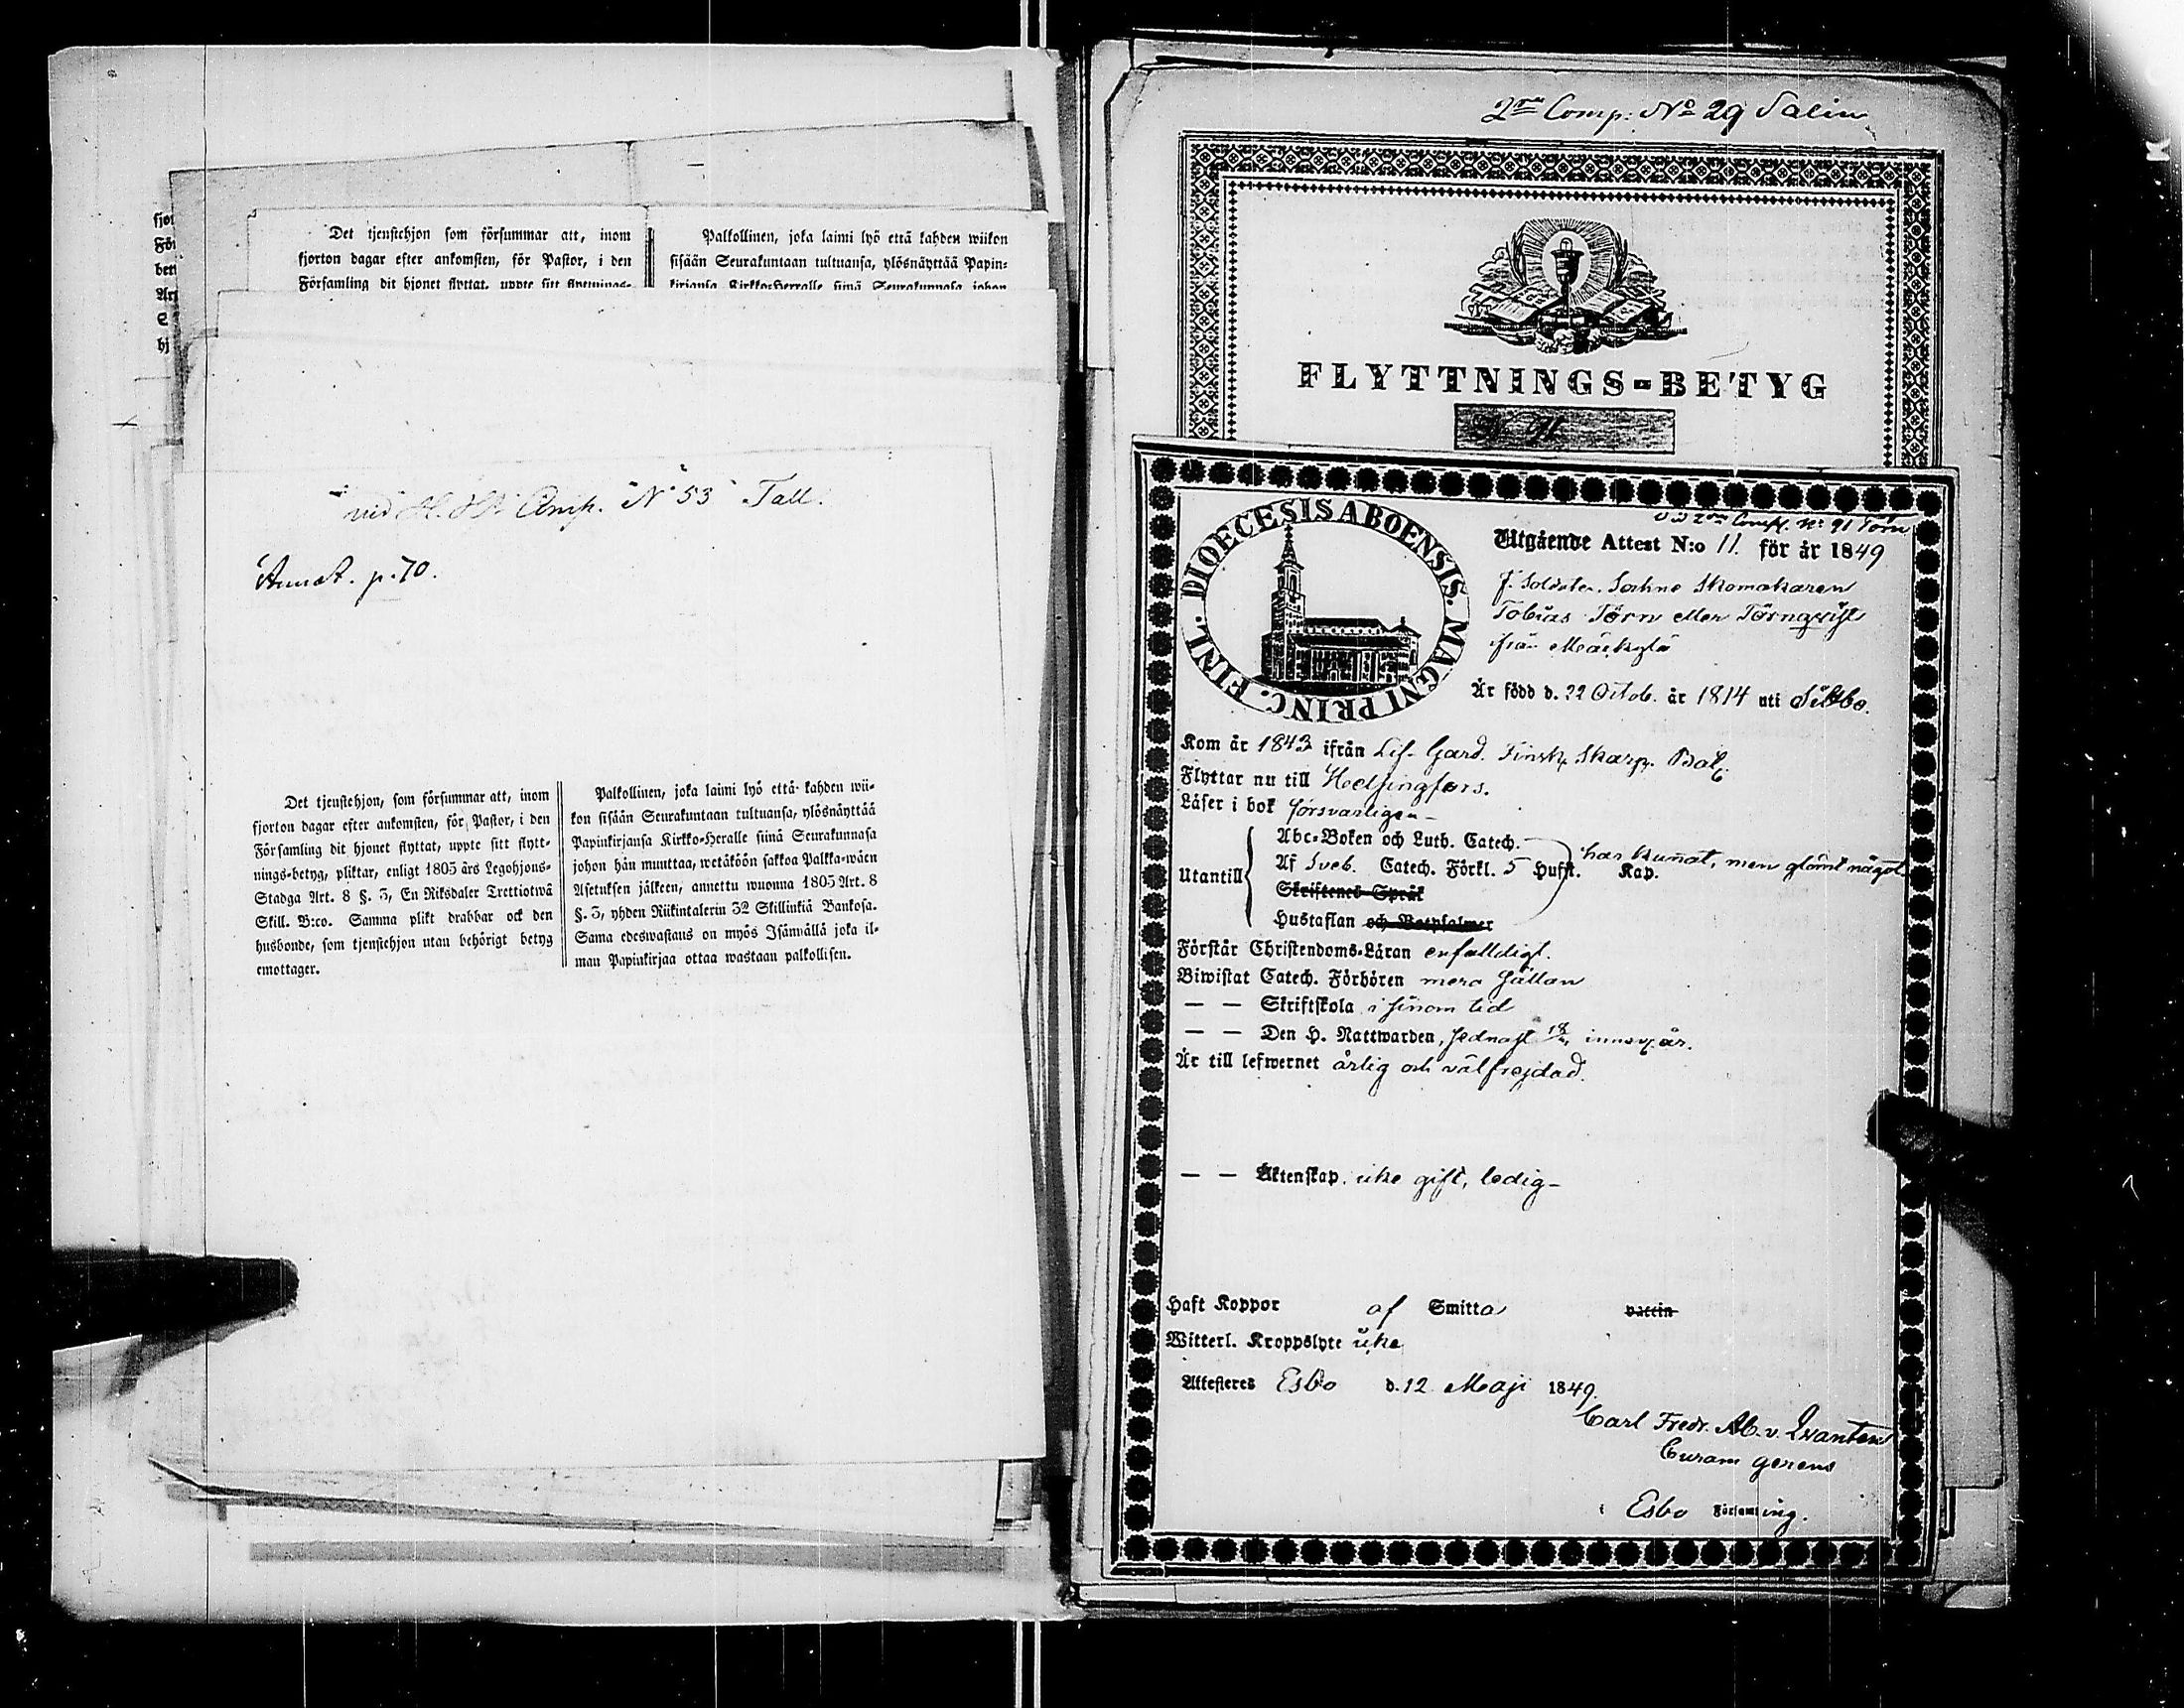 fjor
För
bet
Art
S
hj
Det tjenstehjon som försummar att, inom
fjorton dagar efter ankomsten, för Pastor, i den
Församling dit hjonet flyttat, uppte sitt flyttnings-
Palkollinen, joka laimi lyö että kahden wiikon
sisään Seurakuntaan tultuansa, ylösnäyttää Papin-
kirjansa Kirkko-Herralle siinä Seurakunnasa johon
vid Comp. No 53 Tall.
Annot. p. 70.
Det tjenstehjon, som försummar att, inom
fjorton dagar efter ankomsten, för Pastor, i den
Församling dit hjonet flyttat, uppte sitt flytt-
nings-betyg, pliktar, enligt 1805 års Legohjons-
Stadga Art. 8 §. 3, En Riksdaler Trettiotwå
Skill. B:co. Samma plikt drabbar ock den
husbonde, som tjenstehjon utan behörigt betyg
emottager.
Palkollinen, joka laimi lyö että kahden wii-
kon sisään Seurakuntaan tultuansa, ylösnäyttää
Papinkirjansa Kirkko-Heralle siinä Seurakunnasa
johon hän muuttaa, wetäköön sakkoa Palkka-wäen
Asetuksen jälkeen, annettu wuonna 1805 Art. 8
§. 3, yhden Riikintalerin 32 Skillinkiä Bankosa.
Sama edeswastaus on myös Isännällä joka il-
man Papinkirjaa ottaa wastaan palkollisen.
2dra Comp: No 29 Salin
FLYTTNINGS-BETYG
vid 2dra Comp. No 91 Törn
DIOECESIS ABOENSIS. MAGNI PRINC. FINL.
Utgående Attest N:o 11. för år 1849
f. Soldaten, Skomakaren
Tobias Törn eller Törnqvist
från
Är född d. 22 Octob. år 1814 uti
Kom år 1843 ifrån Lif-Gard. Finsk. Skarp. Bat.
Flyttar nu till Helsingfors.
Läser i bok försvarligen
Utantill
Abc-Boken och Luth. Catech.
Af Sveb. Catech. Förkl. 5 Hufst. Kap.
har kunnat, men glömt något
Skriftenes Språk
Hustaflan och Botpsalmer
Förstår Christendoms-Läran enfalldigt.
Biwistat Catech. Förhören mera sällan
— — Skriftskola i sinom tid
— — Den H. Nattwarden, sednast innev. år.
Är till lefwernet ärlig och välfrejdad.
— — Äktenskap icke gift, ledig
Haft Koppor af Smitta vaccin
Witterl. Kroppslyte icke
Attesteres Esbo d. 12 Maji 1849.
Carl Fredr. Alb. v. Qvanten
Curam gerens
i Esbo Församling.